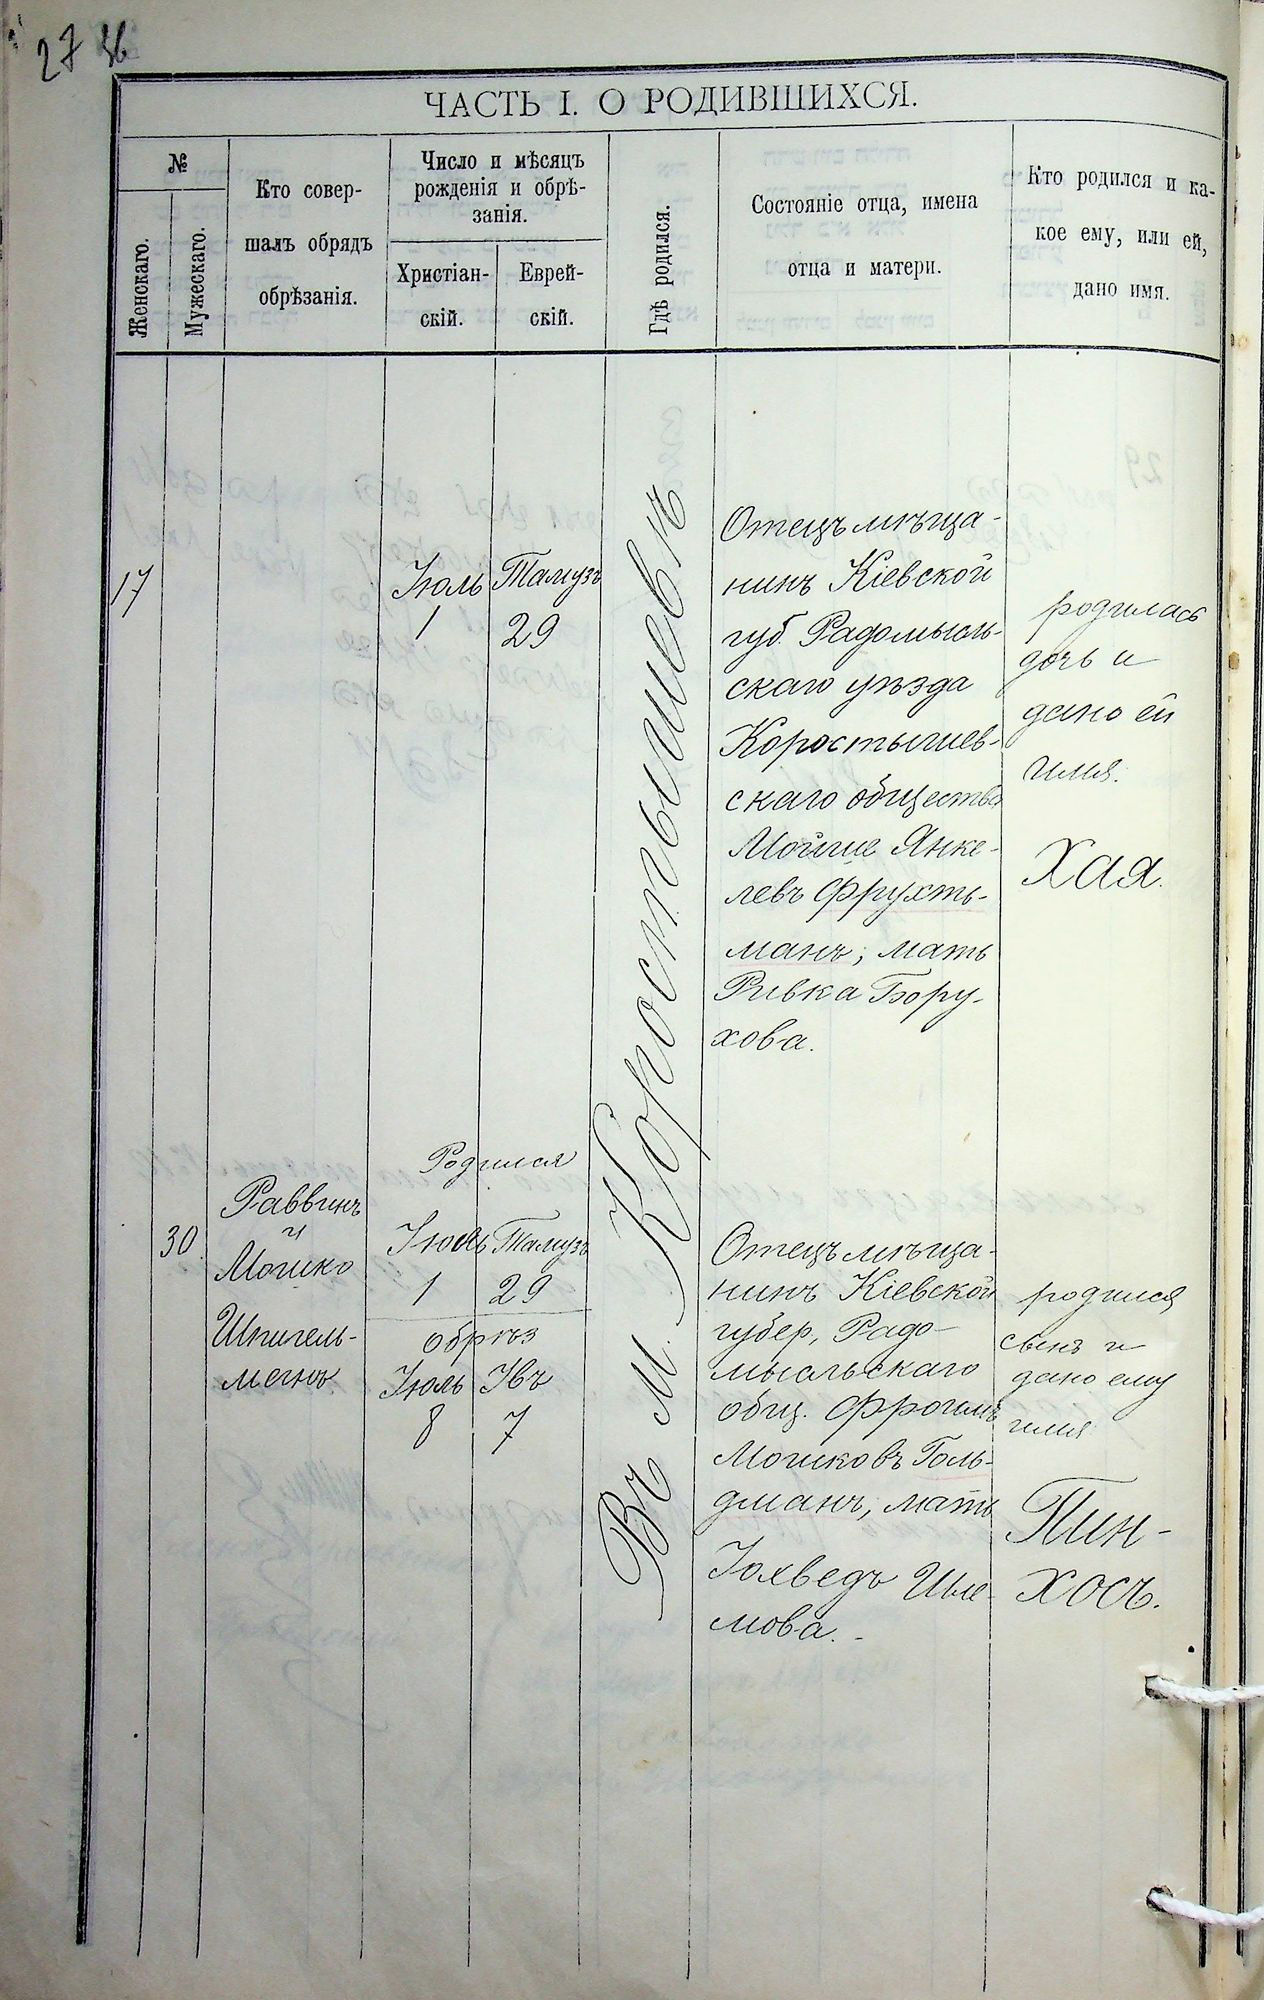 27 36
ЧАСТЬ I. О РОДИВШИХСЯ.
№
Женскаго.
Мужескаго.
Кто совер-
шалъ обрядъ
обрѣзанія.
Число и мѣсяцъ
рожденія и обрѣ-
занія.
Христіан-
скій.
Еврей-
скій.
Гдѣ родился.
Состояніе отца, имена
отца и матери.
Кто родился и ка-
кое ему, или ей,
дано имя.
17
Іюль
1
Тамузъ
29
Въ м. Коростышевѣ
Отецъ мѣща-
нинъ Кіевской
губ. Радомысль-
скаго уѣзда
Коростышев-
скаго общества
Мойше Янке-
левъ Фрухть-
манъ, мать
Ривка Бору-
хова.
родилась
дочь и
дано ей
имя.
Хая.
30
Раввинъ
и
Мошко
Шпигель-
менъ
Родился
Іюль
1
Тамузъ
29
обрѣз
Іюль
8
Івъ
7
Отецъ мѣща-
нинъ Кіевской
губер, Радо-
мысльскаго
общ. Фроимъ
Мошковъ Голь-
дманъ, мать
Іохведъ Шле-
мова.
родился
сынъ и
дано ему
имя
Пин-
хосъ.